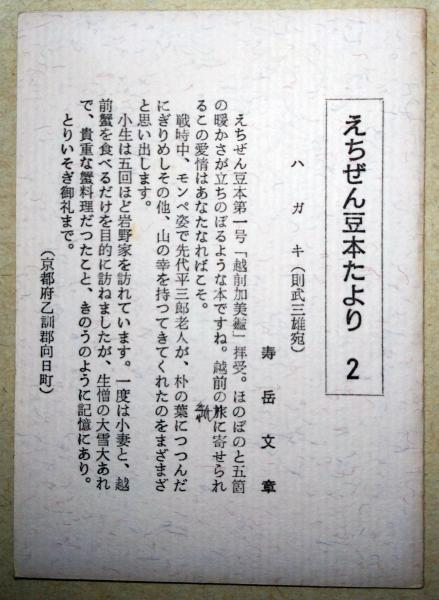 えちぜん豆本たより 2
ハガキ(則武三雄宛)
寿岳文章
えちぜん豆本第一号「越前加美鑑」拝受。ほのぼのと五箇
の暖かさが立ちのぼるような本ですね。越前の旅に寄せられ
紙
るこの愛情はあなたなればこそ。
戦時中、モンペ姿で先代平三郎老人が、朴の葉につつんだ
にぎりめしその他、山の幸を持つてきてくれたのをまざまざ
と思い出します。
小生は五回ほど岩野家を訪れています。一度は小妻と、越
前蟹を食べるだけを目的に訪ねましたが、生憎の大雪大あれ
で、貴重な蟹料理だつたこと、きのうのように記憶にあり。
とりいそぎ御礼まで。
(京都府乙訓郡向日町)